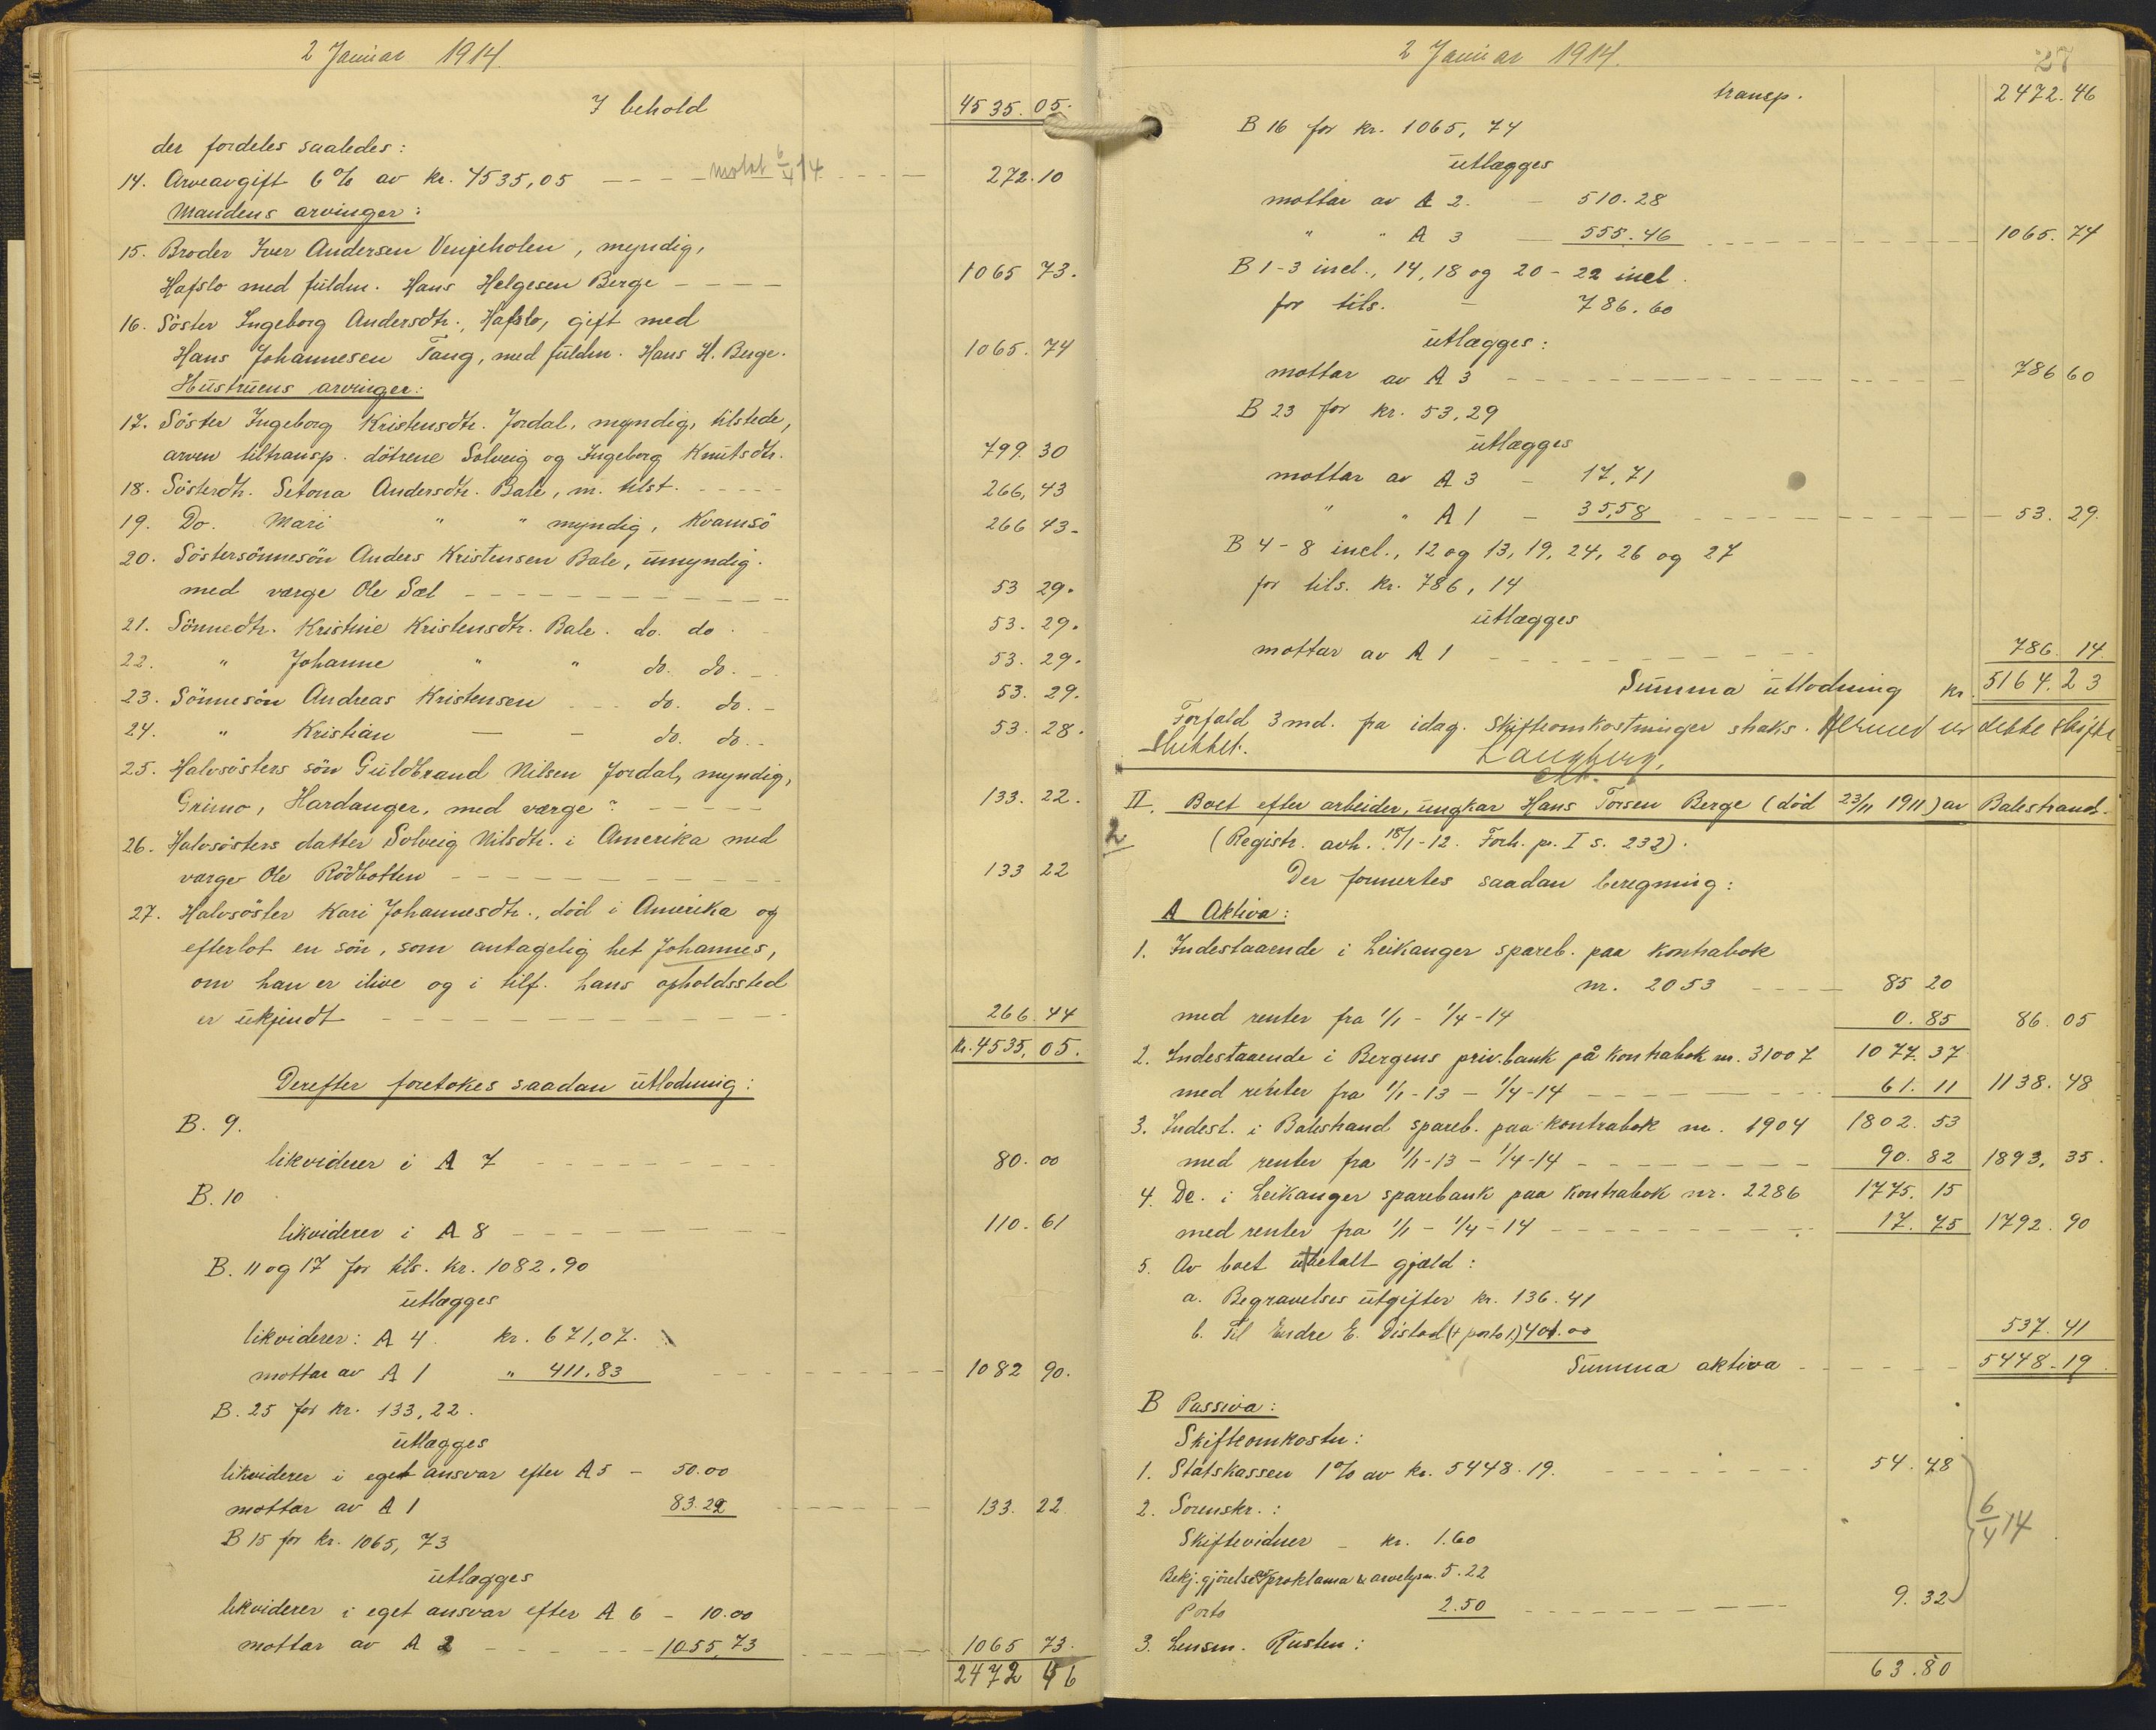 2 Januar 1914.
I behold 4535.05.
der fordeles saaledes:
14. Arveavgift 6% av kr. 4535,05 - - - motat 6/4 14 - - - 272.10
Mandens arvinger:
15. Broder Iver Andersen Venjeholen, myndig,
Hafslo med fuldm. Hans Helgesen Berge - - - - 1065 73.
16. Söster Ingeborg Andersdtr., Hafslo, gift med
Hans Johannesen Tang, med fuldm. Hans H. Berge. 1065.74
Hustruens arvinger:
17. Söster Ingeborg Kristensdtr. Jordal, myndig, tilstede,
arven tiltransp. dötrene Solveig og Ingeborg Knutsdtr. 799.30
18. Sösterdtr. Setona Andersdtr. Bale, m. tilst. - - - - 266,43
19. Do. Mari " " myndig, Kvamsö 266 43-
20. Söstersönnesön Anders Kristensen Bale, umyndig.
med værge Ole Sæl - - - - - - - - 53 29.
21. Sönnedtr. Kristine Kristensdtr. Bale. do. do. - 53.29.
22. " Johanne " " do. do. - 53.29.
23. Sönnesön Andreas Kristensen - - - do. do. - 53.29.
24. " Kristian - - do. do. - 53.28.
25. Halvsösters sön Guldbrand Nilsen Jordal, myndig,
Grimo, Hardanger, med værge ? - - - - - 133.22.
26. Halvsösters datter Solveig Nilsdtr. i Amerika med
værge Ole Rödbotten - - - - - - - - - 133 22
27. Halvsöster Kari Johannesdtr., död i Amerika og
efterlot en sön, som antagelig het Johannes,
om han er ilive og i tilf. hans opholdssted
er ukjendt - - - - - - - - - - 266.44
Kr. 4535,05.
Derefter foretokes saadan utlodning:
B. 9.
likviderer i A 7 - - - - - - - 80.00
B. 10
likviderer i A 8 - - - - - - - 110.61
B. 11 og 17 for tils. kr. 1082.90
utlægges
likviderer: A 4. kr. 671,07.
mottar av A 1 " 411.83 - - - - - - - 1082 90.
B. 25 for kr. 133,22.
utlægges
likviderer i eget ansvar efter A 5 - 50.00
mottar av A 1 83.22 - - - - - 133.22
B 15 for kr. 1065,73
utlægges
likviderer i eget ansvar efter A 6 - 10.00
mottar av A 2 - - - - - 1055,73 - - - - 1065 73.
2472 46
2 Januar 1914. 27
transp. 2472.46
B 16 for kr. 1065,74
utlægges
mottar av A 2. - 510.28
" " A 3 - 555.46 - - - - - - - 1065.74
B 1-3 incl., 14, 18 og 20-22 incl.
for tils. - 786.60
utlægges:
mottar av A 3 - - - - - - - - - - 786 60
B 23 for kr. 53,29
utlægges
mottar av A 3 - 17,71
" " A 1 - 35,58 - - - - - - 53.29.
B 4-8 incl., 12 og 13, 19, 24, 26 og 27
for tils. kr. 786,14
utlægges
mottar av A 1 - - - - - - - - - 786.14.
Summa utlodning kr. 5164.23
Forfald 3 md. fra idag. Skifteomkostninger straks. Hermed er dette skifte
sluttet. Langberg,
II. Boet efter arbeider, ungkar Hans Torsen Berge (död 23/11 1911) av Balestrand.
2
(Registr. avh. 18/1-12. Forh. pr. I s. 232).
Der formertes saadan beregning:
A Aktiva:
1. Indestaaende i Leikanger spareb. paa kontrabok
nr. 2053 - - - - 85 20
med renter fra 1/1 - 1/4-14 0.85 86.05
2. Indestaaende i Bergens priv.bank på kontrabok nr. 31007 1077.37
med renter fra 1/1-13 - 1/4-14 - - - - - - 61.11 1138.48
3. Indest. i Balestrand spareb. paa kontrabok nr. 1904 1802.53
med renter fra 1/1-13 - 1/4-14 - - - - - - - 90.82 1893,35.
4. Do. i Leikanger sparebank paa kontrabok nr. 2286 1775.15
med renter fra 1/1 - 1/4-14 - - - - - - - - 17.75 1792.90
5. Av boet utbetalt gjæld:
a. Begravelses utgifter kr. 136.41
b. Til Endre E. Distad (+ porto 1) 401.00 537.41
Summa aktiva - - - - - 5448.19.
B Passiva:
Skifteomkostn:
1. Statskassen 1% av kr. 5448.19. - - - - - - 54.48
2. Sorenskr.:
6/4 14
Skiftevidner - kr. 1.60
Bekj.gjörelse av proklama & arvelysn. 5.22
Porto 2.50 - - - - - - - 9.32
3. Lensm. Rusten:
63.80